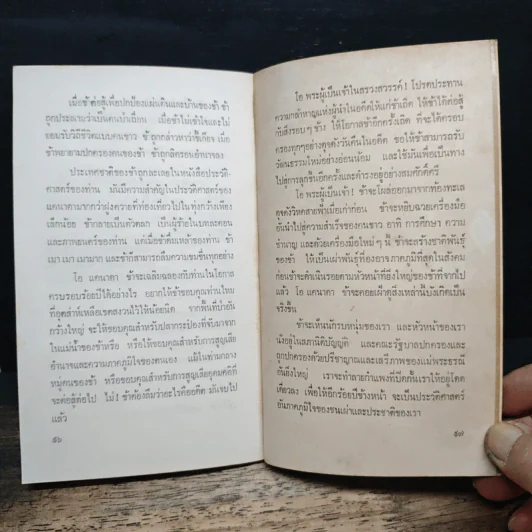 เมื่อข้าต่อสู้เพื่อปกป้องแผ่นดินและบ้านของข้า ข้า
ถูกประณามว่าเป็นคนป่าเถื่อน เมื่อข้าไม่เข้าใจและไม่
ยอมรับวิถีชีวิตแบบคนขาว ข้าถูกกล่าวหาว่าขี้เกียจ เมื่อ
ข้าพยายามปกครองคนของข้า ข้าถูกลิดรอนอำนาจลง
ประเทศชาติของข้าถูกละเลยในหนังสือประวัติ-
ศาสตร์ของท่าน มันมีความสำคัญในประวัติศาสตร์ของ
แคนาดามากกว่าฝูงควายที่ท่องเที่ยวไปในทุ่งกว้างเพียง
เล็กน้อย ข้ากลายเป็นตัวตลก เป็นผู้ร้ายในบทละคอน
และภาพยนตร์ของท่าน แต่เมื่อข้าดื่มเหล้าของท่าน ข้า
เมา เมา เมามาก และข้าสามารถลืมความขมขื่นทุกอย่าง
โอ แคนาดา ข้าจะเฉลิมฉลองกับท่านในโอกาส
ครบรอบร้อยปีได้อย่างไร อยากให้ข้าขอบคุณท่านไหม
ที่อุตส่าห์เหลือเขตสงวนไว้ให้น้อยนิด จากพื้นที่ป่าอัน
กว้างใหญ่ จะให้ขอบคุณสำหรับปลากระป๋องที่จับมาจาก
ในแม่น้ำของข้าหรือ หรือให้ขอบคุณสำหรับการสูญเสีย
อำนาจและความภาคภูมิใจของตนเอง แม้ในท่ามกลาง
หมู่คนของข้า หรือขอบคุณสำหรับการสูญเสียอุดมคติที่
จะต่อสู้ต่อไป ไม่! ข้าต้องลืมว่าอะไรคืออดีต มันจบไป
แล้ว
๕๖
โอ พระผู้เป็นเจ้าในสรวงสวรรค์! โปรดประทาน
ความกล้าหาญแห่งผู้นำในอดีตให้แก่ข้าเถิด ให้ข้าได้ต่อสู้
กับสิ่งรอบๆ ข้าง ให้โอกาสข้าอีกครั้งเถิด ที่จะได้ครอบ
ครองทุกๆอย่างดุจดังวันคืนในอดีต ขอให้ข้าสามารถรับ
วัฒนธรรมใหม่อย่างอ่อนน้อม และใช้มันเพื่อเป็นทาง
ไปสู่การลุกขึ้นอีกครั้งและดำรงอยู่อย่างสมศักดิ์ศรี
โอ พระผู้เป็นเจ้า! ข้าจะโผล่ออกมาจากท้องทะเล
ดุจดังวิหคสายฟ้าเมื่อเก่าก่อน ข้าจะหยิบฉวยเครื่องมือ
อันนำไปสู่ความสำเร็จของคนขาว อาทิ การศึกษา ความ
ชำนาญ และด้วยเครื่องมือใหม่ๆ นี้ ข้าจะสร้างชาติพันธุ์
ของข้า ให้เป็นเผ่าพันธุ์ที่องอาจภาคภูมิที่สุดในสังคม
ก่อนข้าจะดำเนินรอยตามหัวหน้าที่ยิ่งใหญ่ของข้าที่จากไป
แล้ว โอ แคนาดา ข้าจะคอยเฝ้าดูสิ่งเหล่านี้บังเกิดเป็น
จริงขึ้น
ข้าจะเห็นนักรบหนุ่มของเรา และหัวหน้าของเรา
นั่งอยู่ในสภานิติบัญญัติ และคณะรัฐบาลปกครองและ
ถูกปกครองด้วยปรีชาญาณและเสรีภาพของแม่พระธรณี
อันยิ่งใหญ่ เราจะทำลายกำแพงที่ปิดกั้นเราให้อยู่โดด
เดี่ยวลง เพื่อให้อีกร้อยปีข้างหน้า จะเป็นประวัติศาสตร์
อันภาคภูมิใจของชนเผ่าและประชาติของเรา
๕๗